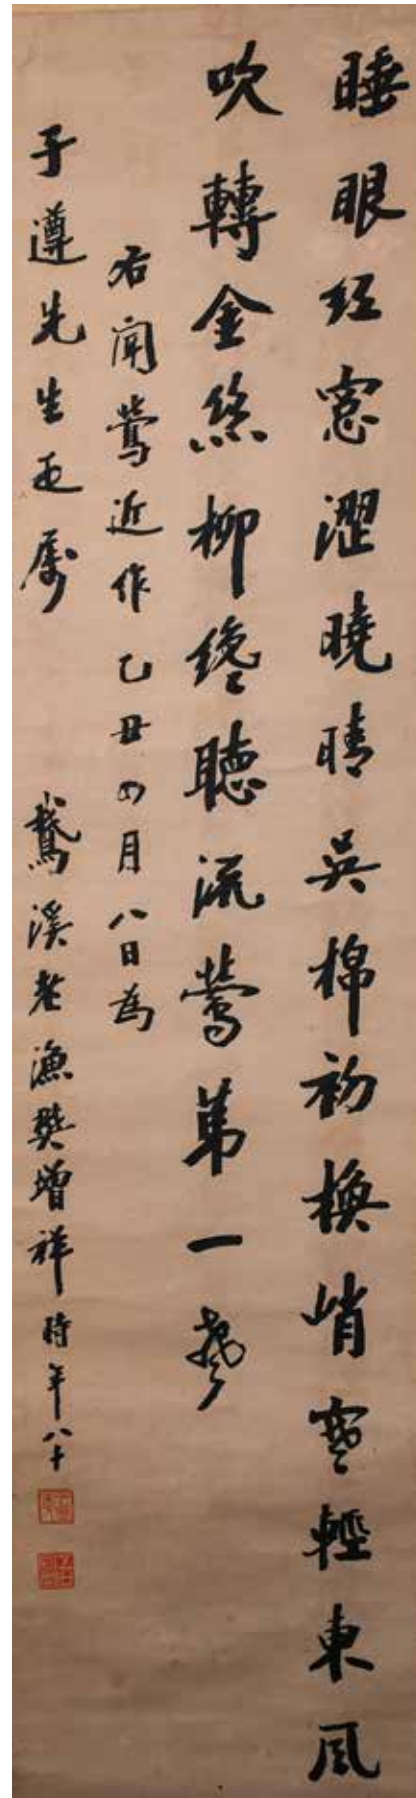 睡眼窓澀曉晴吳棉初換峭寒輕東風
吹轉金絲柳纔聽流鶯第一聲
右聞鶯近作乙丑四月八日為
子遵先生疋属 鵞溪老漁樊增祥時年八十